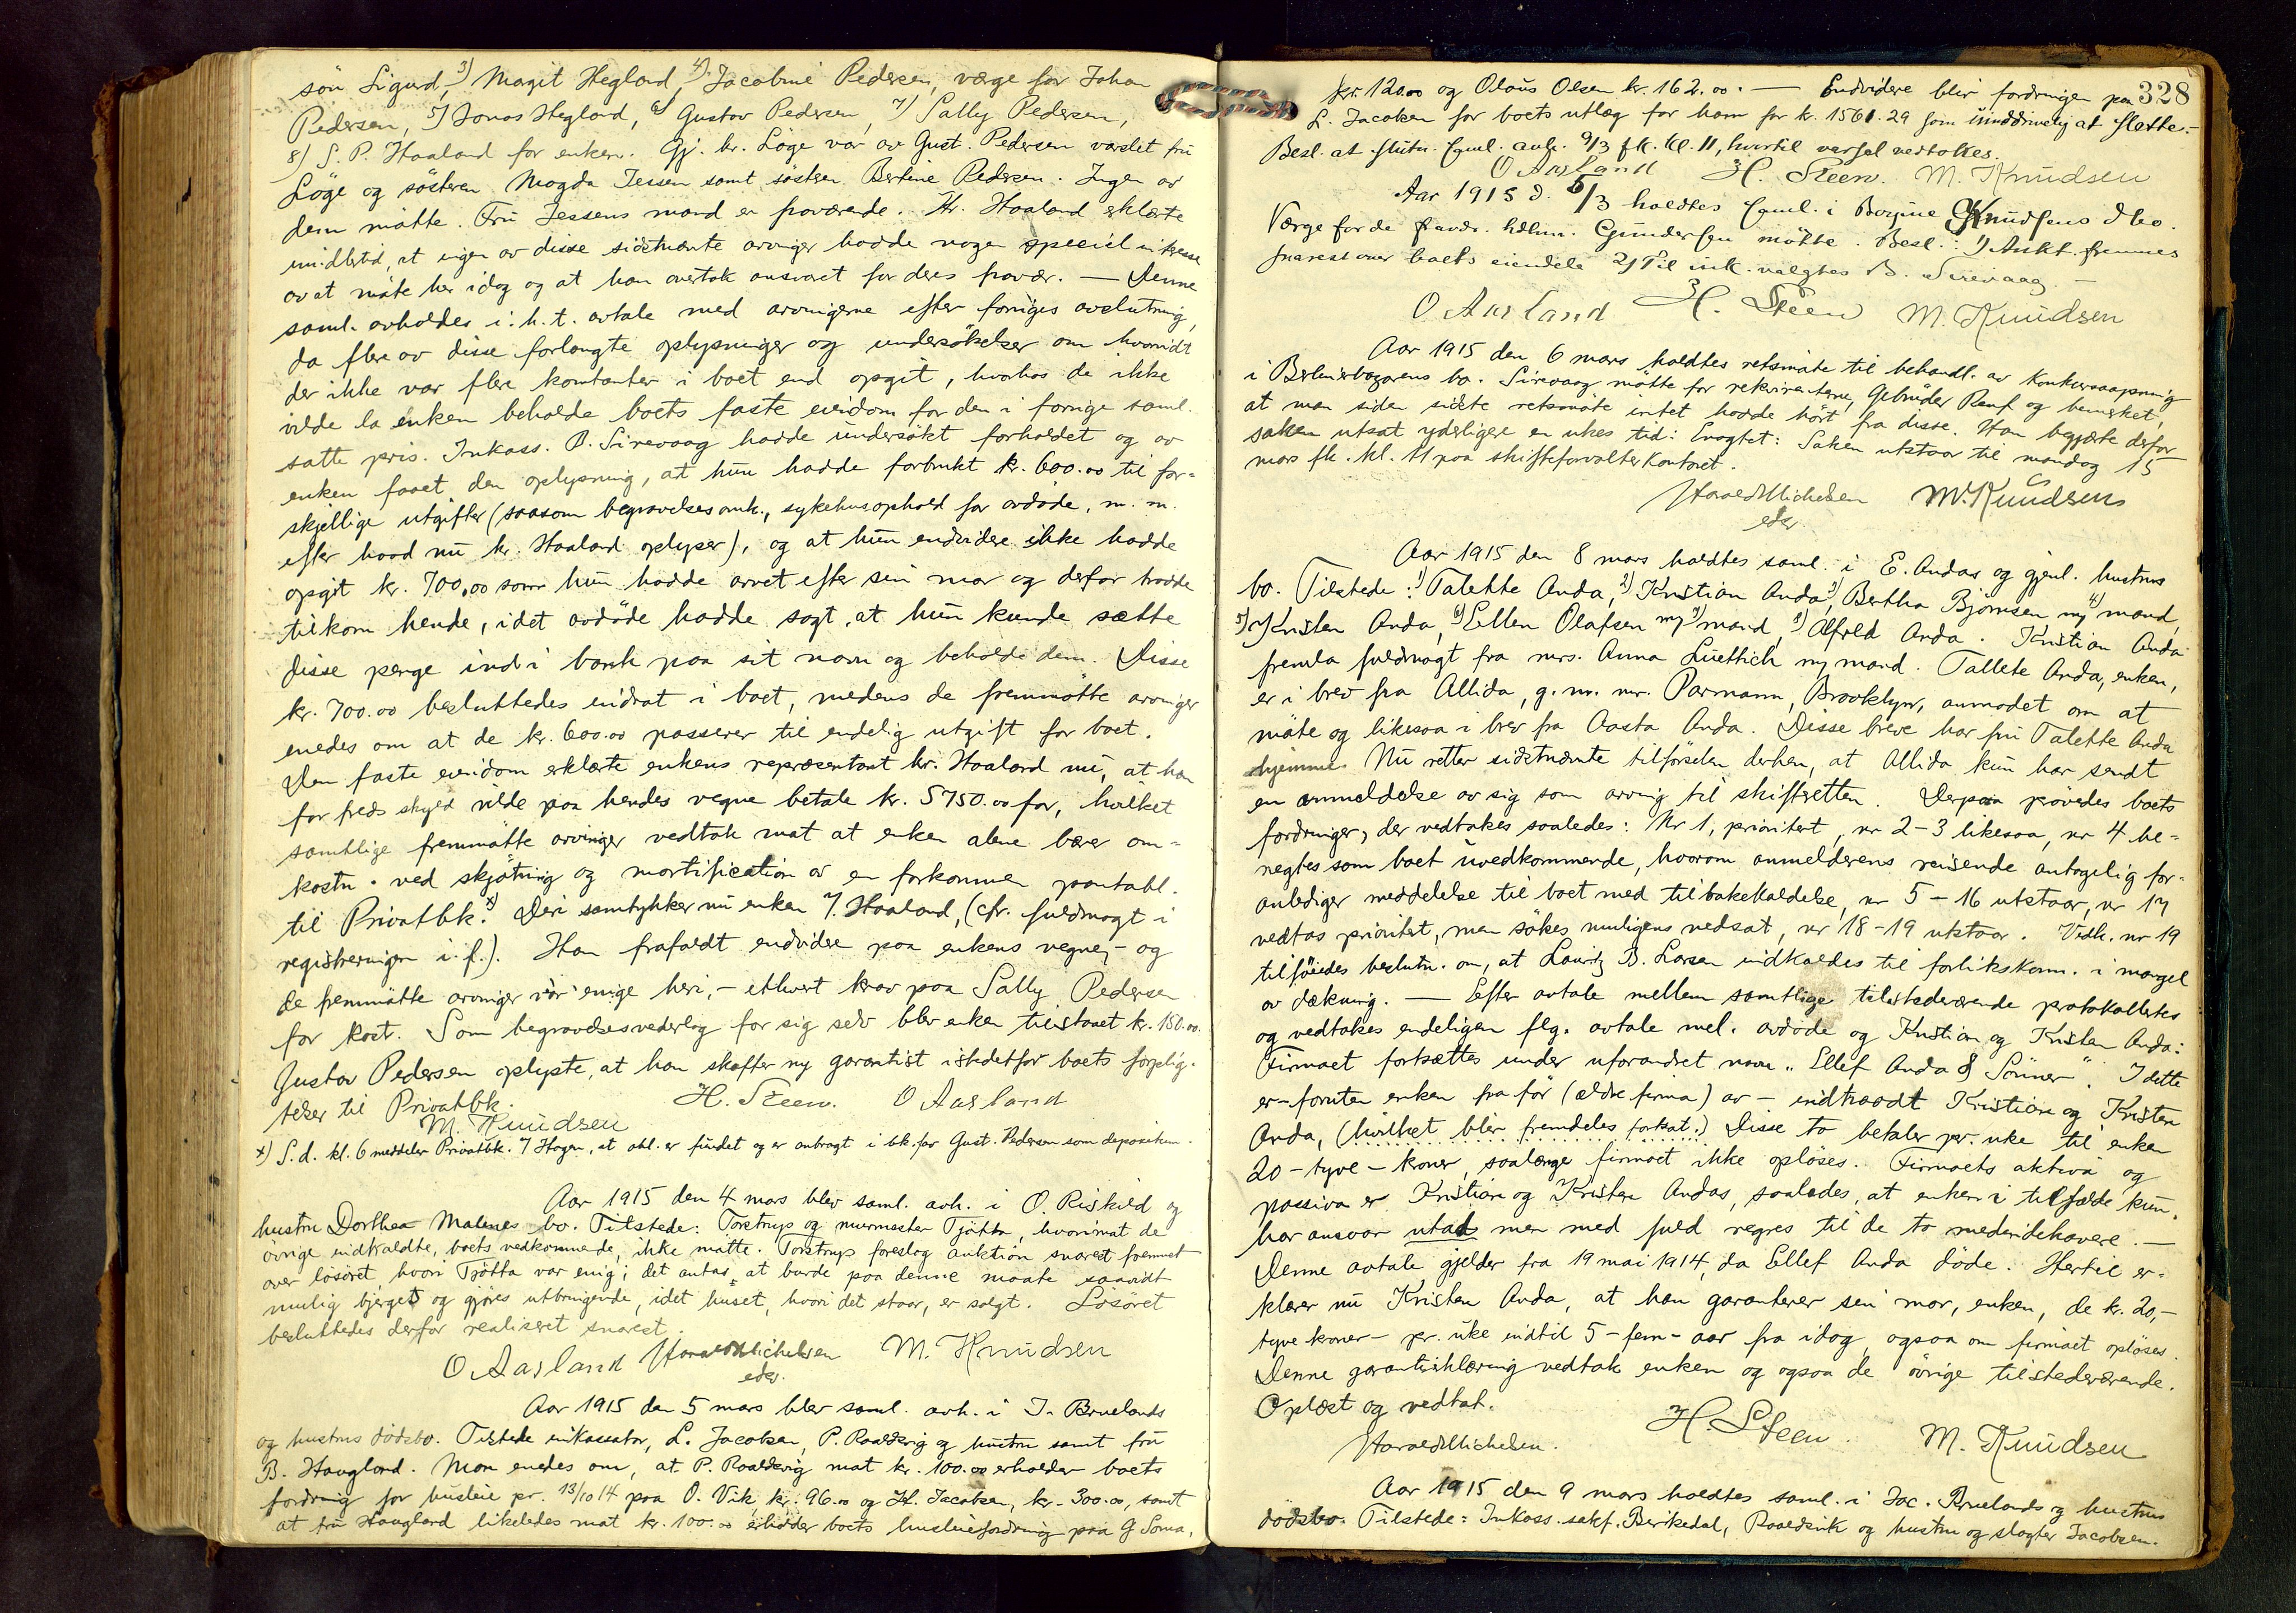 sön Sigurd, 3) Magit Hegland, 4) Jacobine Pedersen, værge for Johan
Pedersen, 5) Jonas Hegland, 6) Gustav Pedersen, 7) Sally Pedersen,
8) S. P. Haaland for enken. Gj. hr. Löge var av Gust. Pedersen varslet fru
Löge og söstren Magda Jessen samt söstren Bertine Pedersen. Ingen av
dem mötte. Fru Jessens mand er fraværende. Hr. Haaland erklærte
imidlertid, at ingen av disse sidstnævnte arvinger hadde nogen speciel interesse
av at möte her idag og at han overtok ansvaret for deres fravær. — Denne
saml. avholdes i. h. t. avtale med arvingerne efter forriges avslutning,
da flere av disse forlangte oplysninger og undersökelser om hvorvidt
der ikke var flere kontanter i boet end opgit, hvorhos de ikke
vilde la enken beholde boets faste eiendom for den i forrige saml.
satte pris. Inkass. B. Sirevaag hadde undersökt forholdet og av
enken faaet den oplysning, at hun hadde forbrukt kr. 600.00 til for-
skjellige utgifter (saasom begravelsesomk., sykehusophold for avdöde, m. m.
efter hvad nu hr. Haaland oplyser), og at hun endvidere ikke hadde
opgit kr. 700,00 som hun hadde arvet efter sin mor og derfor trodde
tilkom hende, idet avdöde hadde sagt, at hun kunde sætte
disse penge ind i bank paa sit navn og beholde dem. Disse
kr. 700.00 besluttedes inddrat i boet, medens de fremmötte arvinger
enedes om at de kr. 600.00 passerer til endelig utgift for boet.
Den faste eiendom erklærte enkens repræsentant hr. Haaland nu, at han
for freds skyld vilde paa hendes vegne betale kr. 5750.00 for, hvilket
samtlige fremmötte arvinger vedtok mot at enken alene bærer om-
kostn. ved skjötning og mortifikation av en forkommen pantobl.
til Privatbk. x) Deri samtykker nu enken v/ Haaland, (cfr. fuldmagt i
registreringen i. f.). Han frafaldt endvidere paa enkens vegne, - og
de fremmötte arvinger var enige heri, - ethvert krav paa Sally Pedersen
for kost. Som begravelsesvederlag for sig selv blev enken tilstaaet kr. 150.00.
Gustav Pedersen oplyste, at han skaffer ny garantist istedetfor boets forplig-
telser til Privatbk.
H. Steen. O Aasland
M. Knudsen
x) S. d. kl. 6 meddeler Privatbk. v/ Hagen, at obl. er fundet og er anbragt i bk. for Gust. Pedersen som depositum.
Aar 1915 den 4 mars blev saml. avh. i O. Riskild og
hustru Dorthea Malenes bo. Tilstede: Torstrup og murmester Tjötta, hvorimot de
övrige indkaldte, boets vedkommende, ikke mötte. Torstrup foreslog auktion snarest fremmet
over lösöret, hvori Tjötta var enig; det antas, at burde paa denne maate saavidt
mulig bjerget og gjöres utbringende, idet huset, hvori det staar, er solgt. Lösöret
besluttedes derfor realiseret snarest.
O Aasland Harald Michelsen M. Knudsen
edsv.
Aar 1915 den 5 mars blev saml. avh. i J. Bruelands
og hustrus dödsbo. Tilstede inkassator, L. Jacobsen, P. Roaldsvig og hustru samt fru
B. Haugland. Man enedes om, at P. Roaldsvig mot kr. 100.00 erholder boets
fordring for husleie pr. 13/10 14 paa O. Vik, kr. 96.00 og H. Jacobsen, kr. 300.00, samt
at fru Haugland likeledes mot kr. 100.00 erholder boets husleiefordring paa G Soma,
328
kr. 120.00 og Olaus Olsen kr. 162.00. — Endvidere blir fordringen paa
L. Jacobsen for boets utlæg for ham for kr. 1561.29 som uinddrivelig at slette.-
Besl. at slutn. saml. avh. 9/3 fk. kl. 11, hvortil varsel vedtokes.
O Aasland H. Steen. M. Knudsen
Aar 1915 d. 5/3 holdtes saml. i Bergine Knudsens dbo.
Værge for de fravær. Gundersen mötte. Besl.: 1) Aukt. fremmes
snarest over boets eiendele 2) Til ink. valgtes B. Sirevaag. -
O Aasland H. Steen M. Knudsen
Aar 1915 den 6 mars holdtes retsmöte til behandl. av konkursaapning
i Berlinerbazarens bo. Sirevaag mötte for rekvirenterne, Gebrüder Rauf og bemerket,
at man siden sidste retsmöte intet hadde hört fra disse. Han begjærte derfor
saken utsat yderligere en ukes tid: Eragtet: Saken utstaar til mandag 15
mars fk. kl. 11 paa skifteforvalterkontoret.
Harald Michelsen M. Knudsen
edsv.
Aar 1915 den 8 mars holdtes saml. i E. Andas og gjenl. hustrus
bo. Tilstede: 1) Talette Anda, 2) Kristian Anda, 3) Bertha Björnsen m/ 4) mand,
5) Kristen Anda, 6) Ellen Olafsen m/ 7) mand, 8) Alfred Anda. Kristian Anda
fremla fuldmagt fra mrs. Anna Luettich m/ mand. Tallete Anda, enken,
er i brev fra Allida, g. m. mr. Parmann, Brooklyn, anmodet om at
möte og likesaa i brev fra Aasta Anda. Disse breve har fru Talette Anda
hjemme. Nu retter sidstnævnte tilförselen derhen, at Allida kun har sendt
en anmeldelse av sig som arving til skifteretten. Derpaa prövedes boets
fordringer, der vedtakes saaledes: Nr 1, prioritert, nr 2-3 likesaa, nr 4 be-
negtes som boet uvedkommende, hvorom anmelderens reisende antagelig for-
anlediger meddelelse til boet med tilbakekaldelse, nr 5 - 16 utstaar, nr 17
vedtas prioritert, men sökes muligens nedsat, nr 18-19 utstaar. Vedk. nr 19
tilföiedes beslutn. om, at Lauritz B. Larsen indkaldes til forlikskom. i mangel
av dækning. — Efter avtale mellem samtlige tilstedeværende protokolleres
og vedtakes endeligen flg. avtale mel. avdöde og Kristian og Kristen Anda:
Firmaet fortsættes under uforandret navn „Ellef Anda & Sönner". I dette
er - foruten enken fra för (ældre firma) av - indtraadt Kristian og Kristen
Anda, (hvilket blir fremdeles fortsat.) Disse to betaler pr. uke til enken
20 - tyve - kroner, saalænge firmaet ikke oplöses. Firmaets aktiva og
passiva er Kristian og Kristen Andas, saaledes, at enken i tilfælde kun
har ansvar utad men med fuld regres til de to medindehavere. —
Denne avtale gjelder fra 19 mai 1914, da Ellef Anda döde. Hertil er-
klærer nu Kristen Anda, at han garanterer sin mor, enken, de kr. 20,-
tyve kroner - pr. uke indtil 5 - fem - aar fra idag, ogsaa om firmaet oplöses.
Denne garantierklæring vedtok enken og ogsaa de övrige tilstedeværende.
Oplæst og vedtat.
Harald Michelsen. H. Steen. M. Knudsen
Aar 1915 den 9 mars holdtes saml. i Jac. Bruelands og hustrus
dödsbo. Tilstede: Inkass. sakf. Berkedal, Roaldsvik og hustru og slagter Jacobsen.